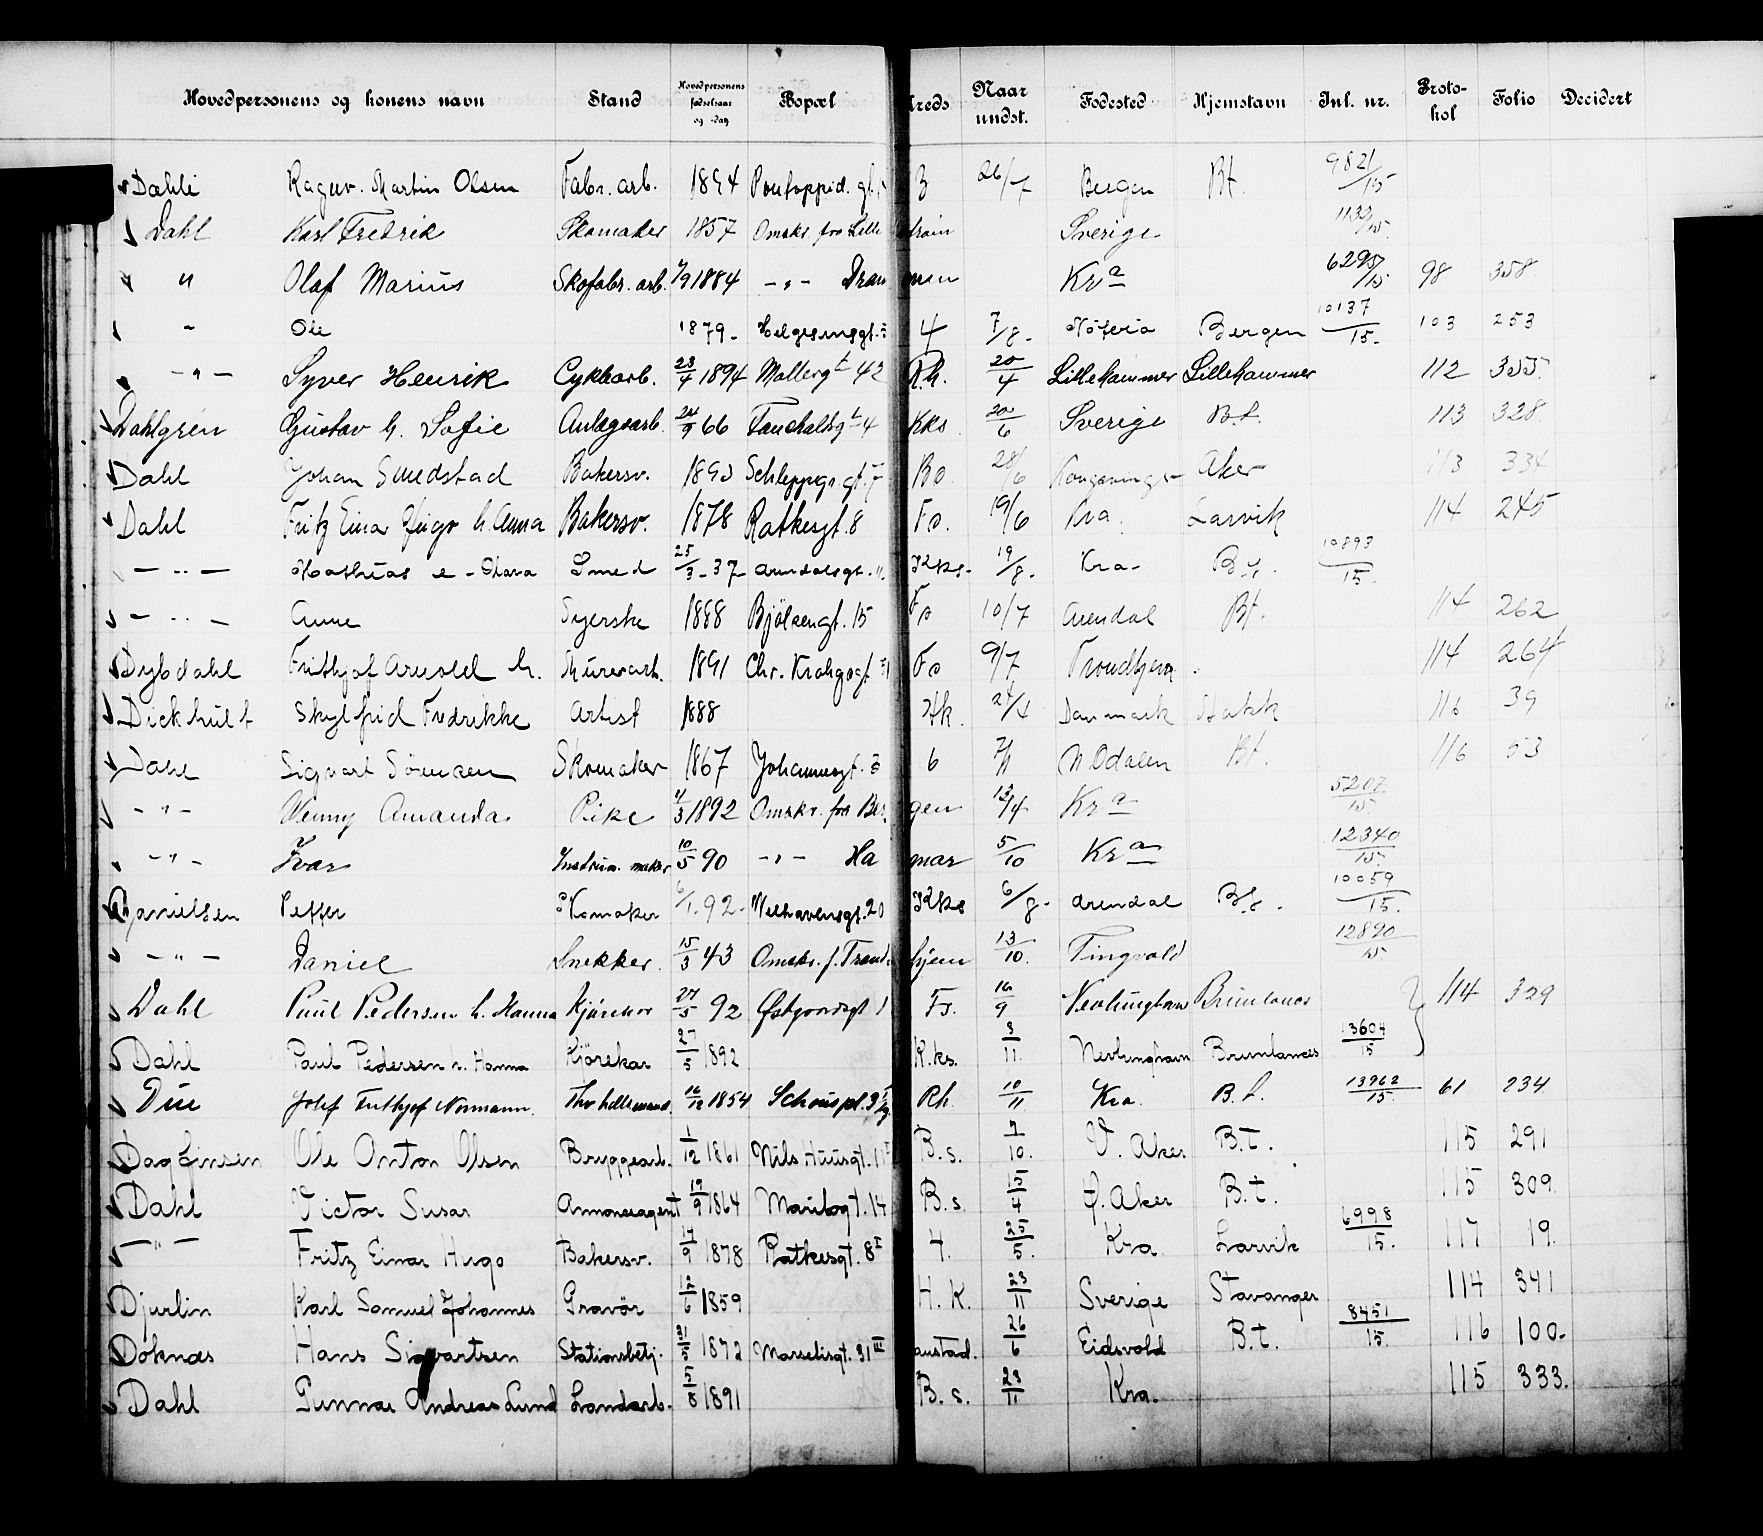 Hovedpersonens og konens navn Stand Hovedpersonens fødselsaar og -dag Bopæl Kreds Naar undst. Fødested Hjemstavn Inl. nr. Proto-kol Folio Decidert
Dahli Martin Olsen Fabr. arb. 1894 3 26/7 Bergen Bt. 9821/15
Dahl Karl Fredrik Skomaker 1857 Omskr. fra Lille strøm Sverige 1133/15
" Olaf Marius Skofabr. arb. 1/9 1884 - " - Dram men Kra 98 358
" Ole 1879 - Helgesensgt. 4 7/8 - Bergen 10137/15 - 103 253
- " - Syver Henrik Cyklearb. 23/4 1894 Møllergt 42 Rh. 20/4 Lillehammer Lillehammer 112 355
Dahlgren Gustav h. Sofie Anlægsarb. 24/9 66 4 Kks 20/6 Sverige B.t. 113 328
Dahl Johan Smedstad Bakersv. Schleppegr gt. 7 Bo. 28/6 Aker 113 334
Dahl Fritz Einar Hugo h. Anna Bakersv. 1878 Ratkesgt. 8 Fo. 19/6 Kra. Larvik 114 245
- " - Mathias e - Smed 25/3 - 37 - Arendalsgt. 11. Kks - 19/8 - Kra - B.t. 10893/15 -
- " - Anne Syerske 1888 Bjölsengt. 15 Fo 10/7 Arendal Bt. 114 262
Dybdahl Frithjof Arnold h. Murerarb. 1891 Chr. Krohgsgt Fo 9/7 Trondhjem 114 264
Dickhult Fredrikke Artist 1888 Hk. Danmark 116 39
Dahl Sigvart Sörensen Skomaker 1867 Johannesgt. 6 N Odalen Bt. 116 53
- " - Venny Amanda Pike 4/3 1892 Omskr. fra Ber gen 13/4 Kra 5207/15
- " - Ivar Instrum. maker 10/5 90 - " - Ha mar 5/10 Kra 12340/15
Danielsen Petter Skomaker 6/1 - 92 - Welhavensgt. 20 Kks 6/8 - Arendal B.t. 10059/15.
- " - Daniel Snekker. 15/3 43 Omskr. f. Trond hjem 13/10. Tingvold 12890/15
Dahl Paul Pedersen h. Hanna Kjörekar 27/5 92 Østgaardsgt 1 Fo. 16/9 Nevlunghavn Brunlanes 114 329
Dahl Paul Pedersen h. Hanna Kjörekar 27/5 1892 K.ks. 3/11. Nevlunghavn Brunlanes 13604/15
Due Josef Frithjof Normann. 16/12 1854 Schous pl. 3 Rh. 10/11 Kra. B.t. 13962/15. 61 234
Dagfinsen Ole Anton Olsen Bryggearb. 1/12 1861 Nils Huusgt. 11 B.s. 7/10. V. Aker. B.t. 115 291
Dahl Victor Susar Annonceagent 19/9 1864 Maribogt. 14 B.s. 15/4 Ø. Aker B.t. 115 309
- " - Fritz Einar Hugo Bakersv. 17/9 1878 Ratkesgt. 8 I 4. 25/5. Kra. Larvik 6998/15. 117 19.
Djurlin Karl Samuel Johannes Gravör 12/6 1859 H.K. 23/11 Sverige Stavanger 114 341
Doknæs Hans Sigvartsen Stationsbetj. 31/5 1872 Marselisgt. 31 III austad. 26/6 Eidsvold B.t. 8451/15. 116 100.
Dahl Gunnar Andreas Lund Landarb. 5/8 1891 B.s. 23/11 Kra. 115 333.